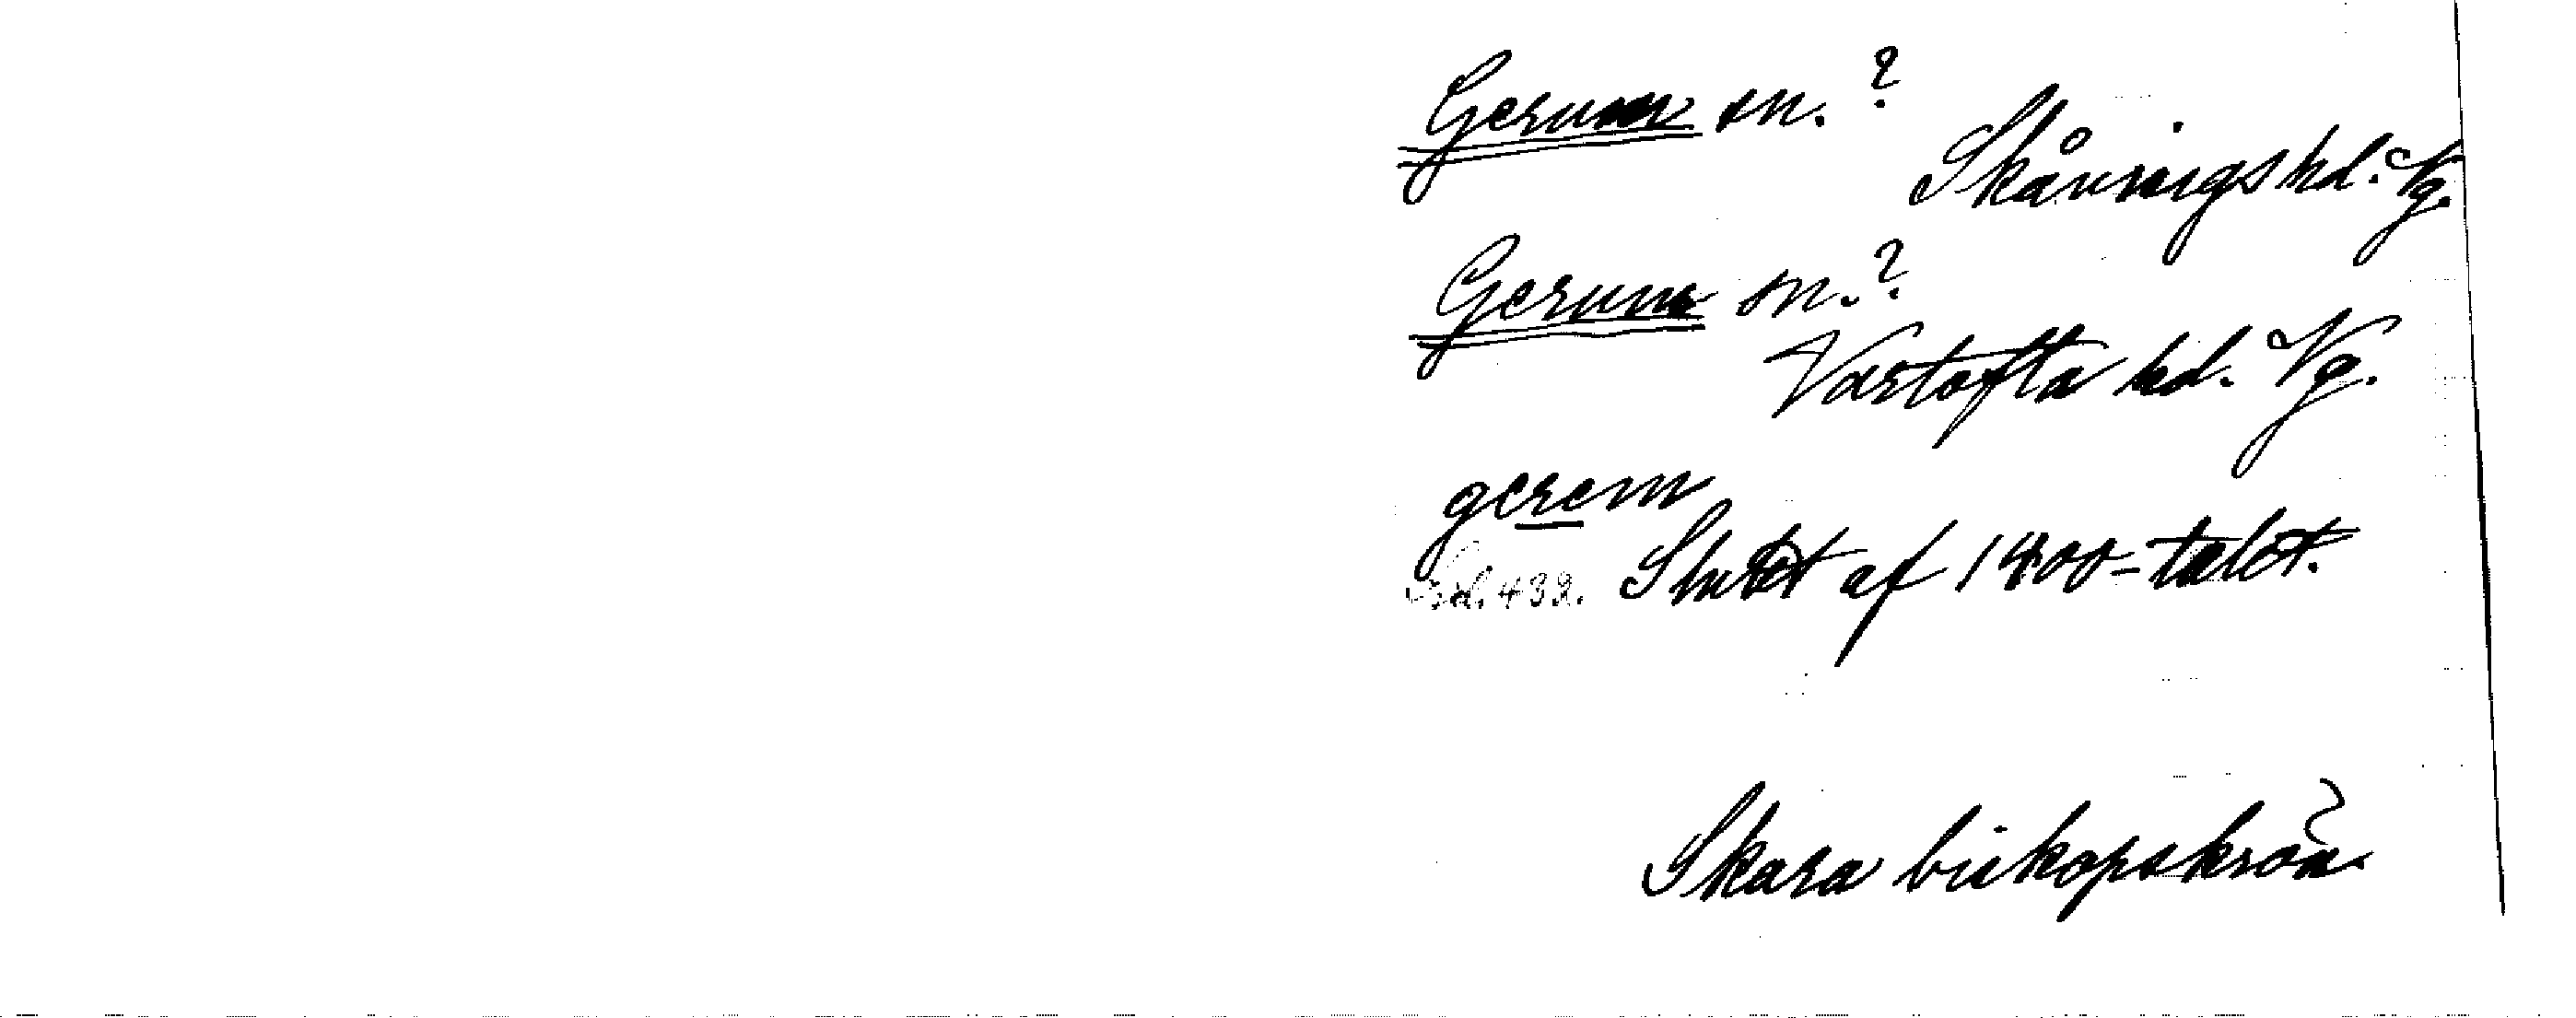 Gerum sn.?
Skånings hd. Vg.
Gerum sn.?
Vartofta hd. Vg.
gerem
Sid. 432. Slutet af 1400-talet.
Skara biskopskrön.